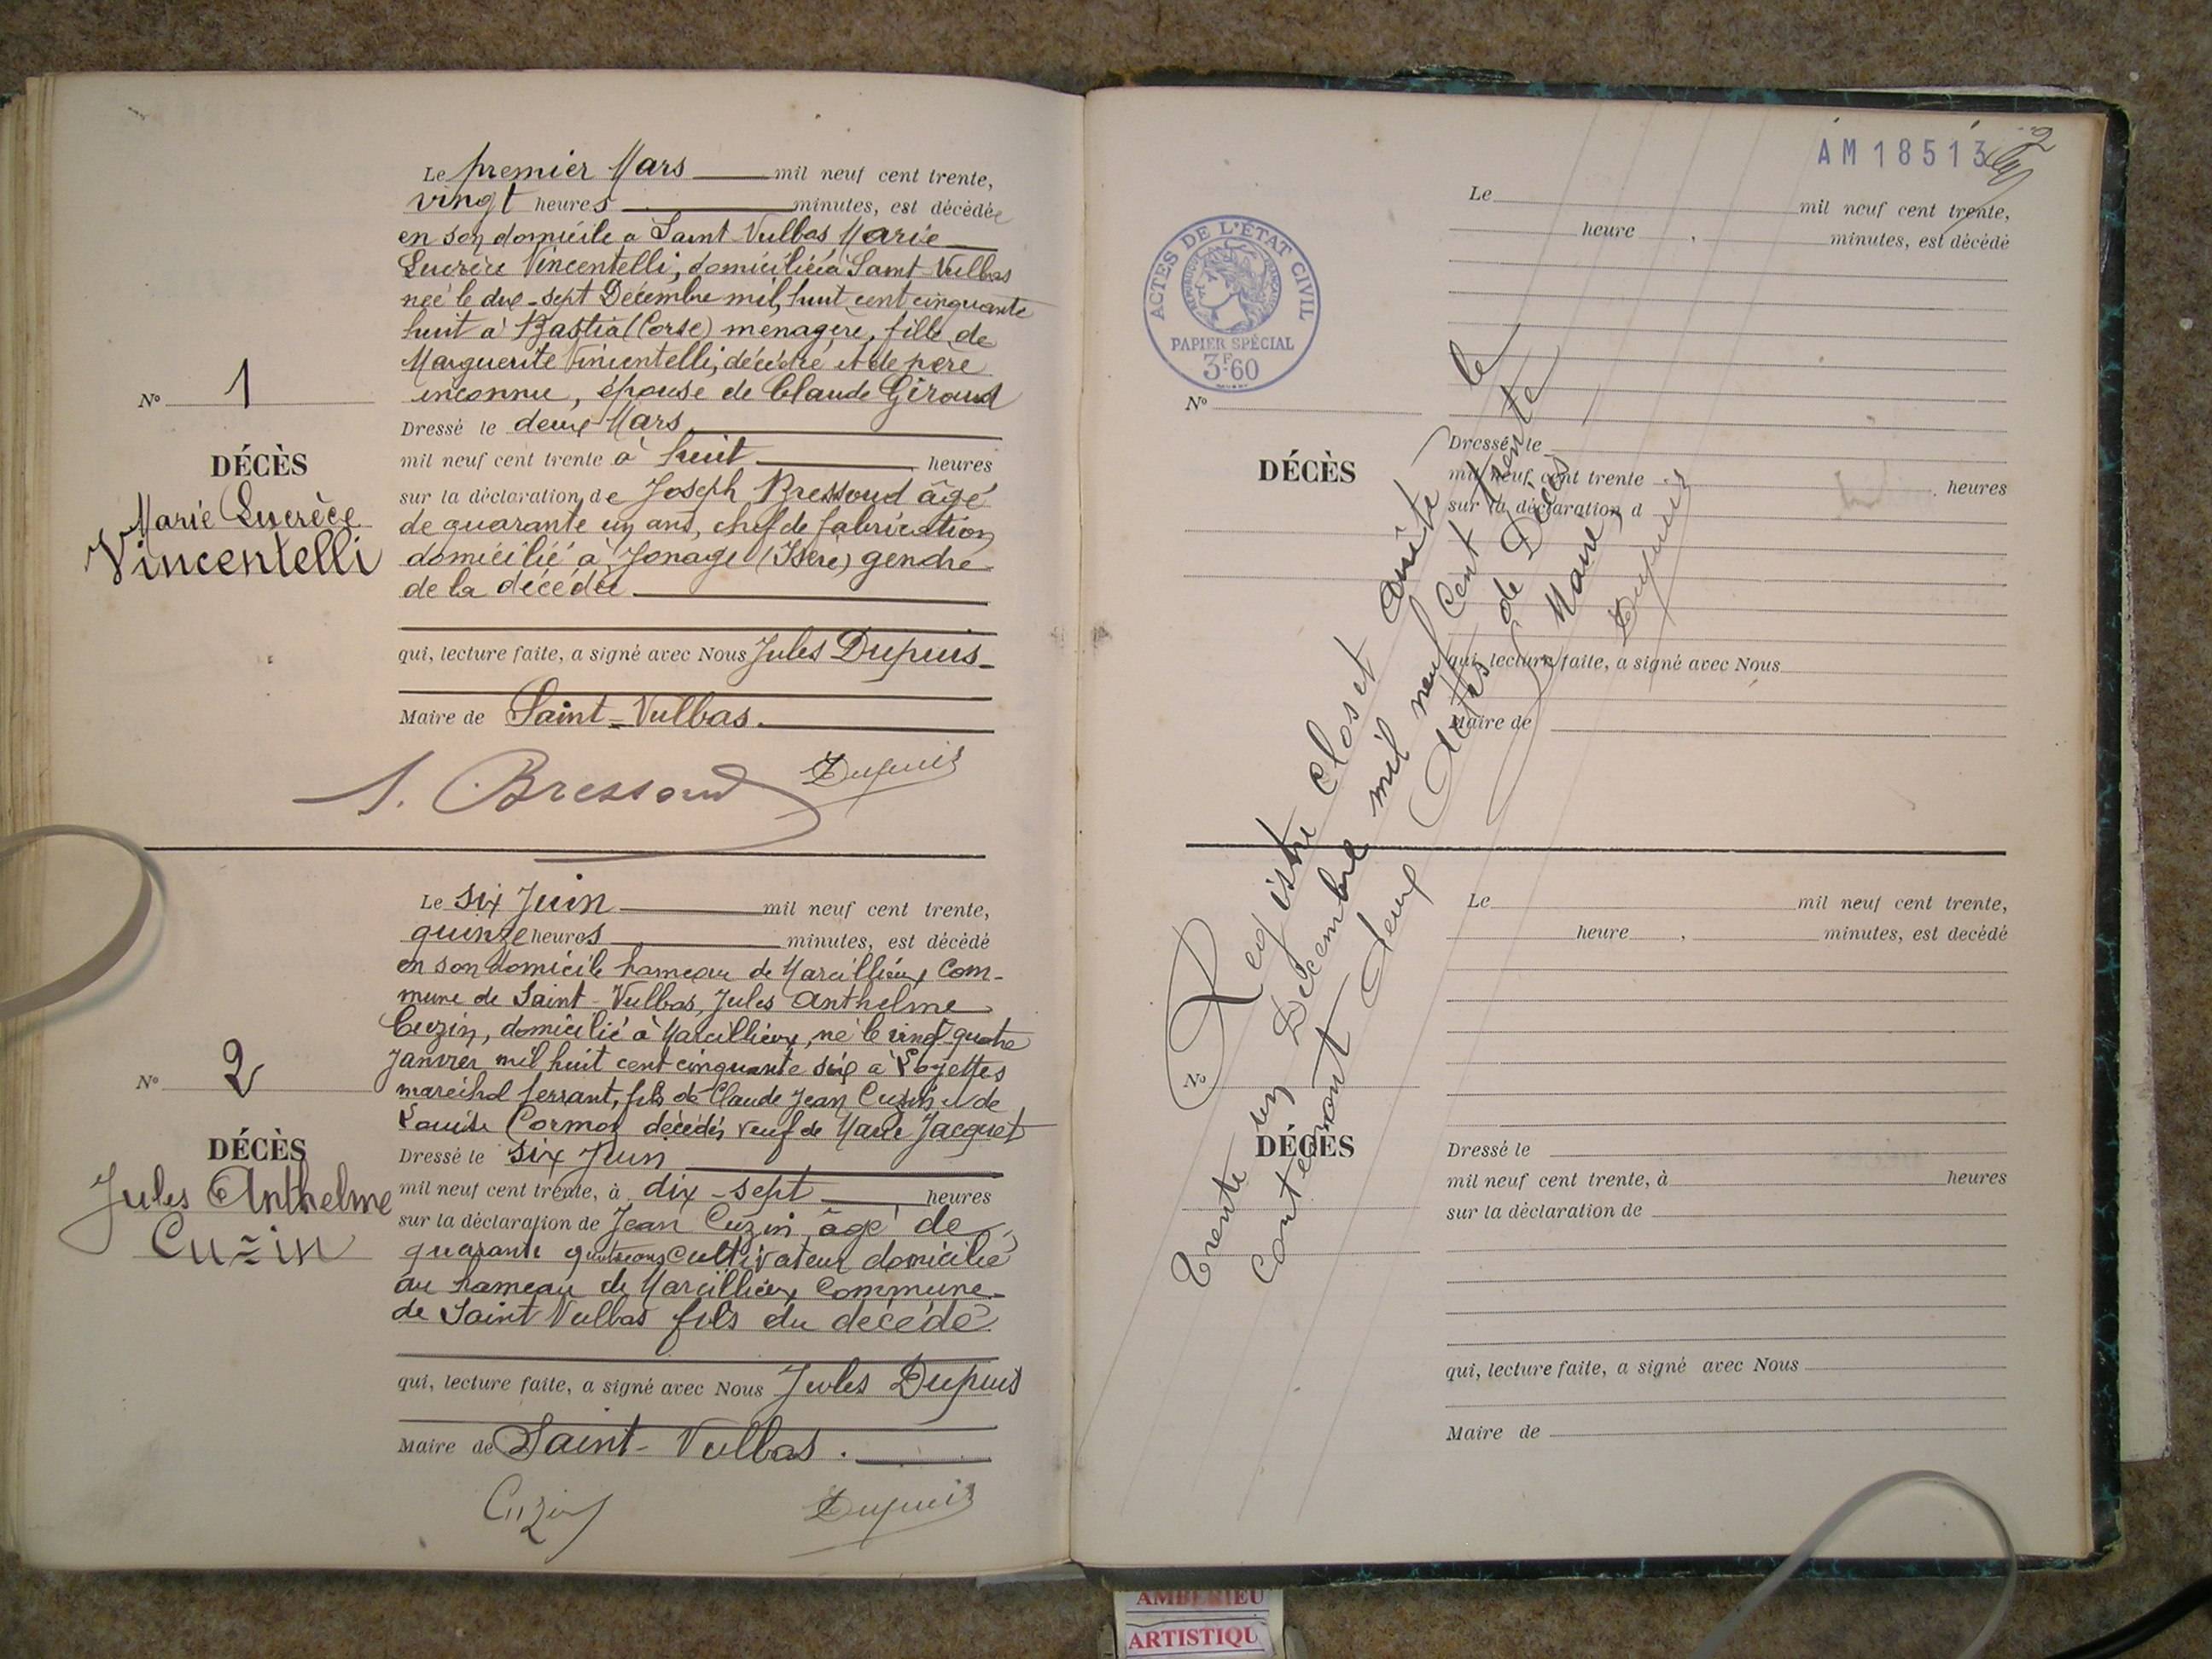 Le premier Mars mil neuf cent trente,
vingt heures minutes, est décédée
en son domicile a Saint-Vulbas Marie
Lucrèce Vincentelli, domiciliée à Saint-Vulbas
née le dix-sept Décembre mil huit cent cinquante
huit à Bastia (Corse) menagère, fille de
Marguerite Vincentelli, décédée et de père
inconnu, épouse de Claude Giroud
N° 1
Dressé le deux Mars
mil neuf cent trente à huit heures
DÉCÈS
sur la déclaration de Joseph Bressoud âgé
Marie Lucrèce
de quarante un ans, chef de fabrication
Vincentelli
domicilié à Jonage (Isère) gendre
de la décédée
qui, lecture faite, a signé avec Nous Jules Dupuis
Maire de Saint-Vulbas.
J. Bressoud Dupuis
Le six Juin mil neuf cent trente,
quinze heures minutes, est décédé
en son domicile hameau de Marcillieux, Com-
mune de Saint-Vulbas, Jules Anthelme
Cuzin, domicilié à Marcillieux, né le vingt quatre
Janvier mil huit cent cinquante six à Loyettes
maréchal ferrant, fils de Claude Jean Cuzin et de
N° 2
Louise Cormoz décédés veuf de Marie Jacquet
DÉCÈS
Dressé le six Juin
Jules Anthelme
mil neuf cent trente, à dix-sept heures
Cuzin
sur la déclaration de Jean Cuzin âgé de
quarante quatre ans cultivateur domicilié
au hameau de Marcillieux Commune
de Saint Vulbas fils du décédé
qui, lecture faite, a signé avec Nous Jules Dupuis
Maire de Saint-Vulbas.
Cuzin Dupuis
AM18513
2
Le mil neuf cent trente,
heure , minutes, est décédé
ACTES DE L'ÉTAT CIVIL
RÉPUBLIQUE FRANÇAISE
PAPIER SPÉCIAL
3F60
N°
Dressé le
DÉCÈS
mil neuf cent trente heures
sur la déclaration d
qui, lecture faite, a signé avec Nous
Maire de
Registre clos et arrêté le
Trente un Décembre mil neuf Cent trente
Contenant deux Actes de Décès
Le Maire,
Dupuis
Le mil neuf cent trente,
heure , minutes, est decédé
N°
DÉCÈS
Dressé le
mil neuf cent trente, à heures
sur la déclaration de
qui, lecture faite, a signé avec Nous
Maire de
AMBERIEU
ARTISTIQU